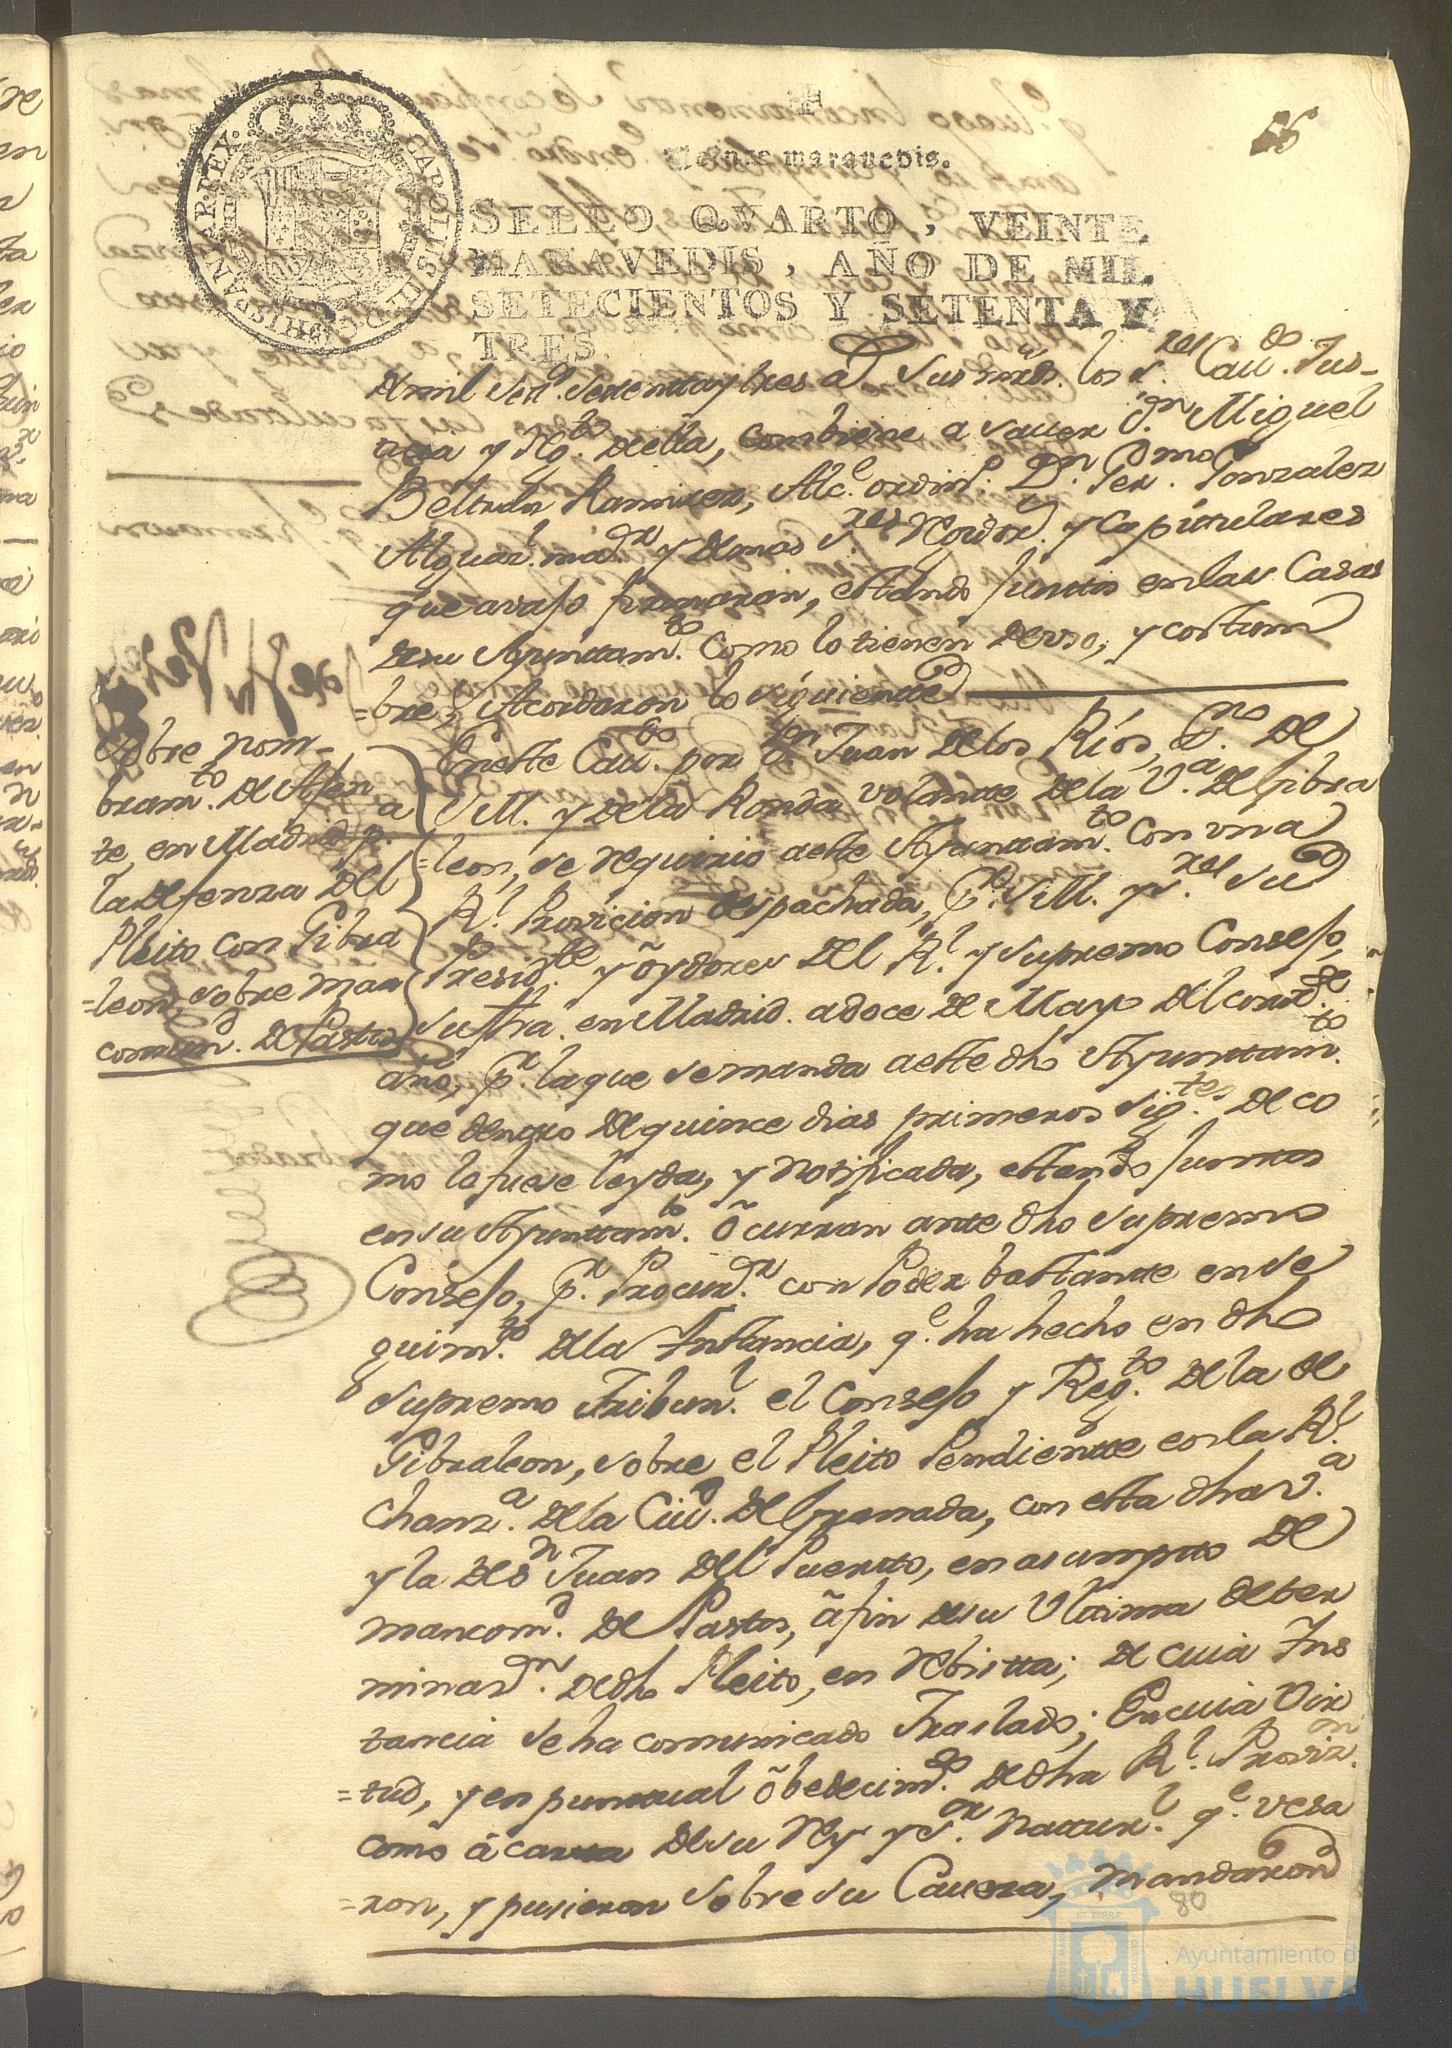 66
Veinte maravedis.
SELLO QVARTO, VEINTE
MARAVEDIS, AÑO DE MIL
SETECIENTOS Y SETENTA Y
TRES.
CAROLUS III D G HISPANIAR REX
de mil setz.s setenta y tres a.s sus mrds. los S.res Cav.do Jus-
ticia y Rg.to de ella, combiene a saver D.n Miguel
Beltrán Ramirez, Alc.e ordin.o D.n Ger.mo Gonzalez
Alguaz.l ma.or y demas S.res Regidor.s y Capitulares
que avajo firmaran, estando juntos en las Casas
de su Ayunttam.to como lo tienen de uso, y costum
=bre, Acordaron lo siguiente
Sobre nom-
bram.to de Ajen
te, en Madrid p.a
la defenza del
Pleito con Gibra
=leon, sobre man
comun.d de Pastos
En este Cav.do por D.n Juan de los Ríos, E.no de
S.M. y de la Ronda volante de la V.a de Gibra
=leon, se requirio a este Ayunttam.to con una
R.l Provicion despachada, p.r S.M. y S.res su
Presid.te y õydores del R.l y Supremo Consejo,
su fha. en Madrid a doce de Mayo del corr.te
año, p.r la que se manda a este dho Ayunttam.to
que dentro de quince dias primeros sig.tes de co
mo le fuese leyda, y notificada, estando juntos
en su Ayunttam.to õcurran ante dho Supremo
Consejo, p.r Procur.or con Poder bastante en se
guim.to de la Instancia, q.e ha hecho en dho
Supremo Tribun.l el Consejo y Reg.to de la de
Gibraleon, sobre el Pleito Pendiente en la R.l
Chanz.a de la Ciu.d de Granada, con esta dha V.a
y la de S.n Juan del Puerto, en asumpto de
mancom.d de Pastos, ã fin de su Ultima deter
minaz.n de dho Pleito, en rebistta; de cuia Ins
tancia se ha comunicado Traslado; En cuia Vir
=tud, y en punttual õbedecim.to de dha R.l Proviz.on
como á cartta de su Rey y S.or Nattur.l q.e vesa
=ron, y pusieron sobre su Caveza, mandaron
80
Ayuntamiento de
HUELVA